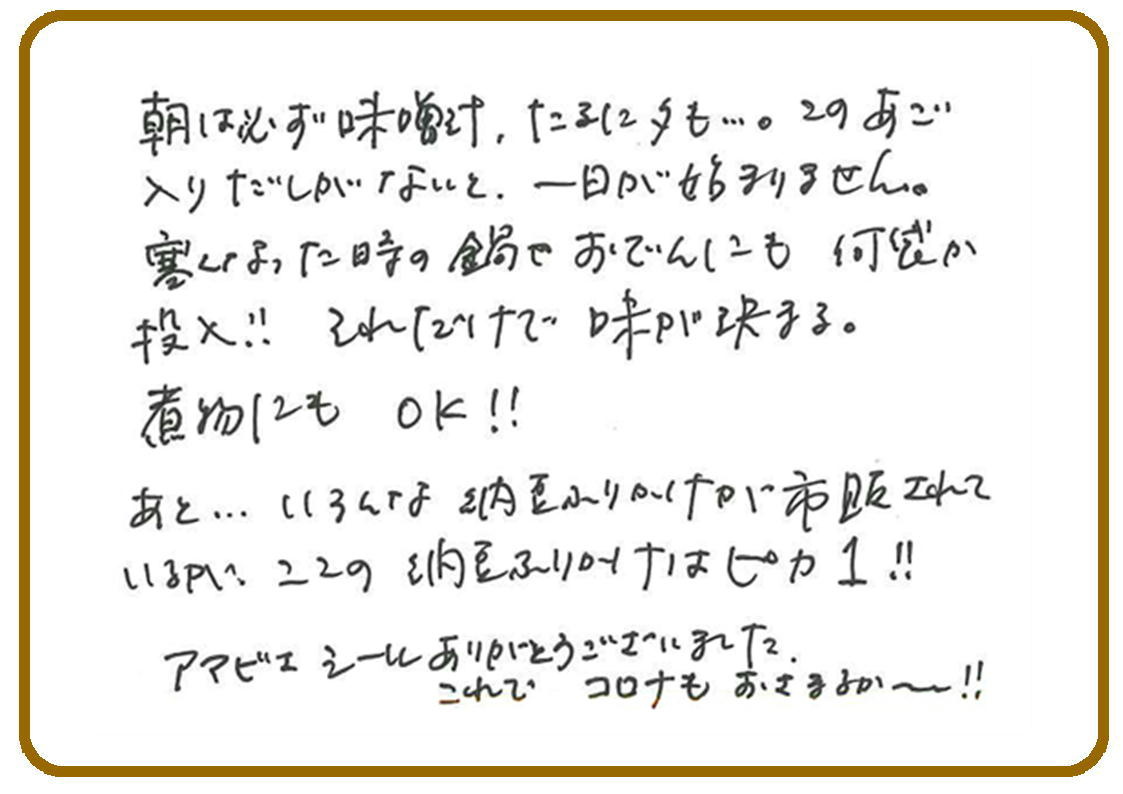 朝は必ず味噌汁、たまに夕も…。このあご
入りだしがないと、一日が始まりません。
寒くなった時の鍋やおでんにも 何袋か
投入!! それだけで 味が決まる。
煮物にも OK!!
あと… いろんな 納豆ふりかけが市販されて
いるが、ここの 納豆ふりかけはピカ1!!
アマビエ シールありがとうございました。
これで コロナも おさまるか〜!!